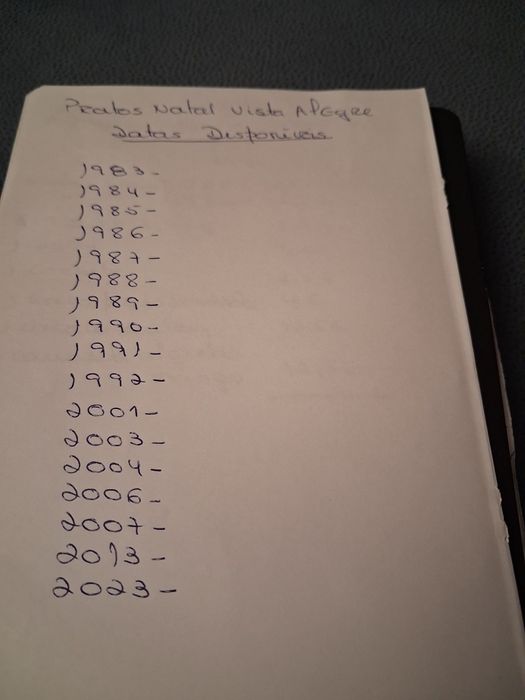 Pratos Natal Vista Alegre
Datas Disponiveis
1983-
1984-
1985-
1986-
1987-
1988-
1989-
1990-
1991-
1992-
2001-
2003-
2004-
2006-
2007-
2013-
2023-